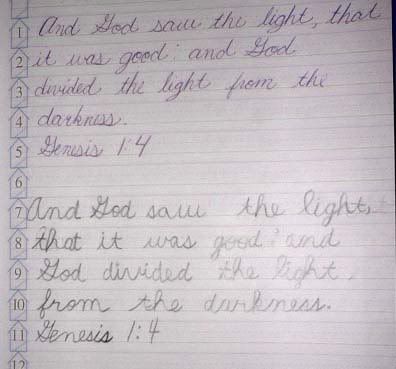 1 And God saw the light, that
2 it was good: and God
3 divided the light from the
4 darkness.
5 Genesis 1:4
6
7 And God saw the light,
8 that it was good: and
9 God divided the light
10 from the darkness.
11 Genesis 1:4
12